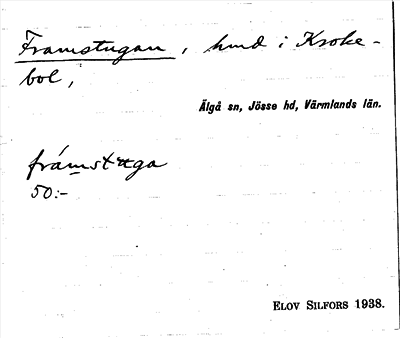 Framstugan, hmd i Kroke-
bol,
Älgå sn, Jösse hd, Värmlands län.
frámstuga
50:-
ELOV SILFORS 1938.